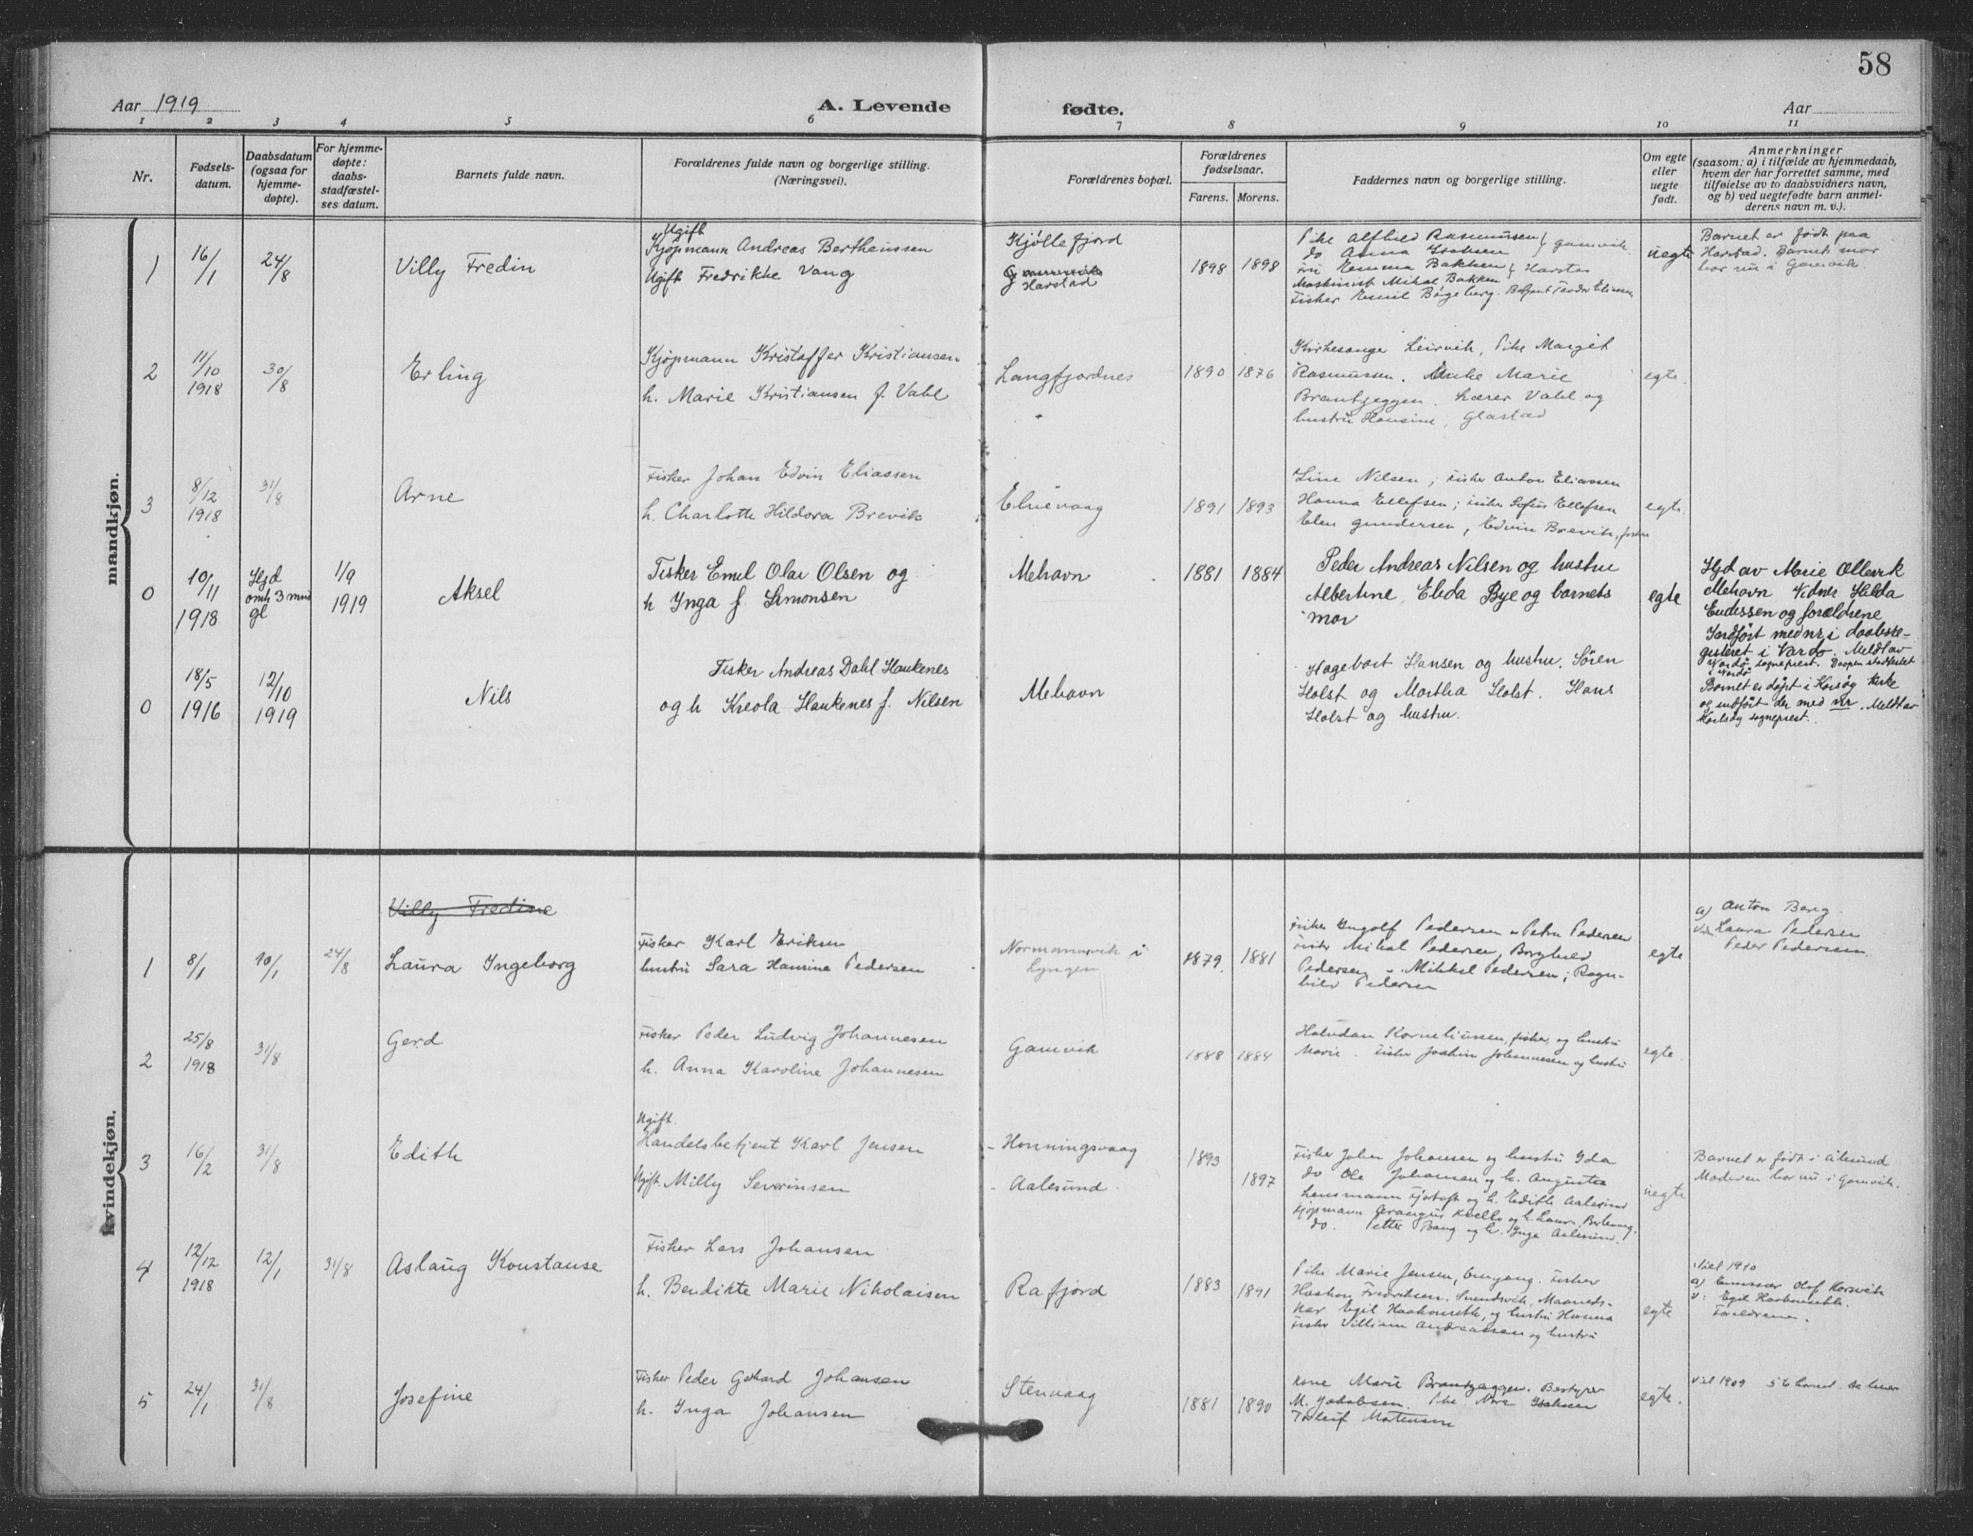 58
Aar 1919
A. Levende
fødte.
Aar
1 2 3 4 5 6 7 8 9 10 11
Nr.
Fødsels-
datum.
Daabsdatum
(ogsaa for
hjemme-
døpte).
For hjemme-
døpte:
daabs-
stadfæstel-
ses datum.
Barnets fulde navn.
Forældrenes fulde navn og borgerlige stilling.
(Næringsvei).
Forældrenes bopæl.
Forældrenes
fødselsaar.
Farens. Morens.
Faddernes navn og borgerlige stilling.
Om egte
eller
uegte
født.
Anmerkninger
(saasom: a) i tilfælde av hjemmedaab,
hvem der har forrettet samme, med
tilføielse av to daabsvidners navn,
og b) ved uegtefødte barn anmel-
derens navn m. v.).
mandkjøn.
1
16/1
24/8
Villy Fredin
Ugift
Kjøpmann Andreas Bertheussen
Ugift Fredrikke Vang
Kjøllefjord
Harstad
1898 1898
Pike Alfhild Rasmussen
do Anna Isaksen } Gamvik
fru Emma Bakken } Harstad
Maskinist Mikal Bakken
Fisker Emil Bøgeberg.
uegte
Barnet er født paa
Harstad. Barnets mor
bor nu i Gamvik.
2
11/10
1918
30/8
Erling
Kjøpmann Kristoffer Kristiansen
h. Marie Kristiansen f. Vahl
Langfjordnes
"
1890 1876
Kirkesanger Leirvik, Pike Margit
Rasmussen. Enke Marie
Brantzeggen. Lærer Vahl og
hustru Hansine, Glastad
egte.
3
8/12
1918
31/8
Arne
Fisker Johan Edvin Eliassen
h. Charlotte Hildora Brevik
1891 1893
Line Nilsen; Fisker Anton Eliassen
Hanna Ellefsen; fisker Sofus Ellefsen
Elen Gundersen, Edvin Brevik, fisker
egte.
0
10/11
1918
Hjd
omtr 3 mnd
gl
1/9
1919
Aksel
Fisker Emil Olai Olsen og
h Inga f. Simonsen
Mehavn
1881 1884
Peder Andreas Nilsen og hustru
Albertine, Elida Bye og barnets
mor
egte
Hjd av Marie Ollevik
Mehavn Vidner Hilda
og forældrene
Indført med nr i daabsre-
gisteret i Vardø. Meldt av
Vardø sogneprest. Daapen stadfestet
i Vardø
0
18/5
1916
12/10
1919
Nils
Fisker Andreas Dahl Haukenes
og h Kreola Haukenes f. Nilsen
Mehavn
Hagebart Hansen og hustru. Søren
Holst og Martha Holst. Hans
Holst og hustru.
Barnet er døpt i Karlsøy kirke
og indført der med nr. Meldt av
Karlsøy sogneprest.
kvindekjøn.
Villy Fredine
1
8/1
10/1
24/8
Laura Ingeborg
Fisker Karl Eriksen
hustru Sara Hansine Pedersen
Normannvik i
Lyngen
1879. 1881
Fisker Ingolf Pedersen, Petra Pedersen
fisker Mikal Pedersen, Borghild
Pedersen, Mikkel Pedersen; Ragn-
hild Pedersen
egte
a) Anton Berg.
Laura Pedersen
Peder Pedersen
2
25/8
1918
31/8
Gerd
Fisker Peder Ludvig Johannesen
h. Anna Karoline Johannesen
Gamvik
1888 1884
Halvdan Korneliussen, fisker, og hustru
Marie. Fisker Joakim Johannesen og hustru
egte.
3
16/2
31/8
Edith
Ugift.
Handelsbetjent Karl Jensen
Ugift. Milly Severinsen
- Honningsvaag
- Aalesund.
1893
1897
Fisker John Johansen og hustru Ida
do Ole Johansen og h. Augusta
Lensmann Fjørtoft og h. Edith Aalesund
do. Petter Bang og h. Inga Aalesund.
uegte
Barnet er født i Aalesund
Moderen bor nu i Gamvik.
4
12/12
1918
12/1
31/8
Aslaug Konstanse
Fisker Lars Johansen
h. Bendikte Marie Nikolaisen
Rafjord
1883 1891
Pike Marie Jensen, Omgang. Fisker
Haakon Fredriksen. Sandsvik, Maaneds-
kar Egil Haakonseth, og hustru Hanna
Fisker Villiam Andreassen og hustru
egte
Viel 1910
a) Emissær Olaf Korsvik
V: Egil Haakonseth.
Foreldrene.
5
24/1
31/8
Josefine
Fisker Peder Gerhard Johansen
h. Inga Johansen
Stenvaag
1881 1890
Kone Marie Brantzeggen. Bestyrer
M. Jakobsen. Pike Nora Isaksen
Torleif Mortensen
egte.
Viel 1909